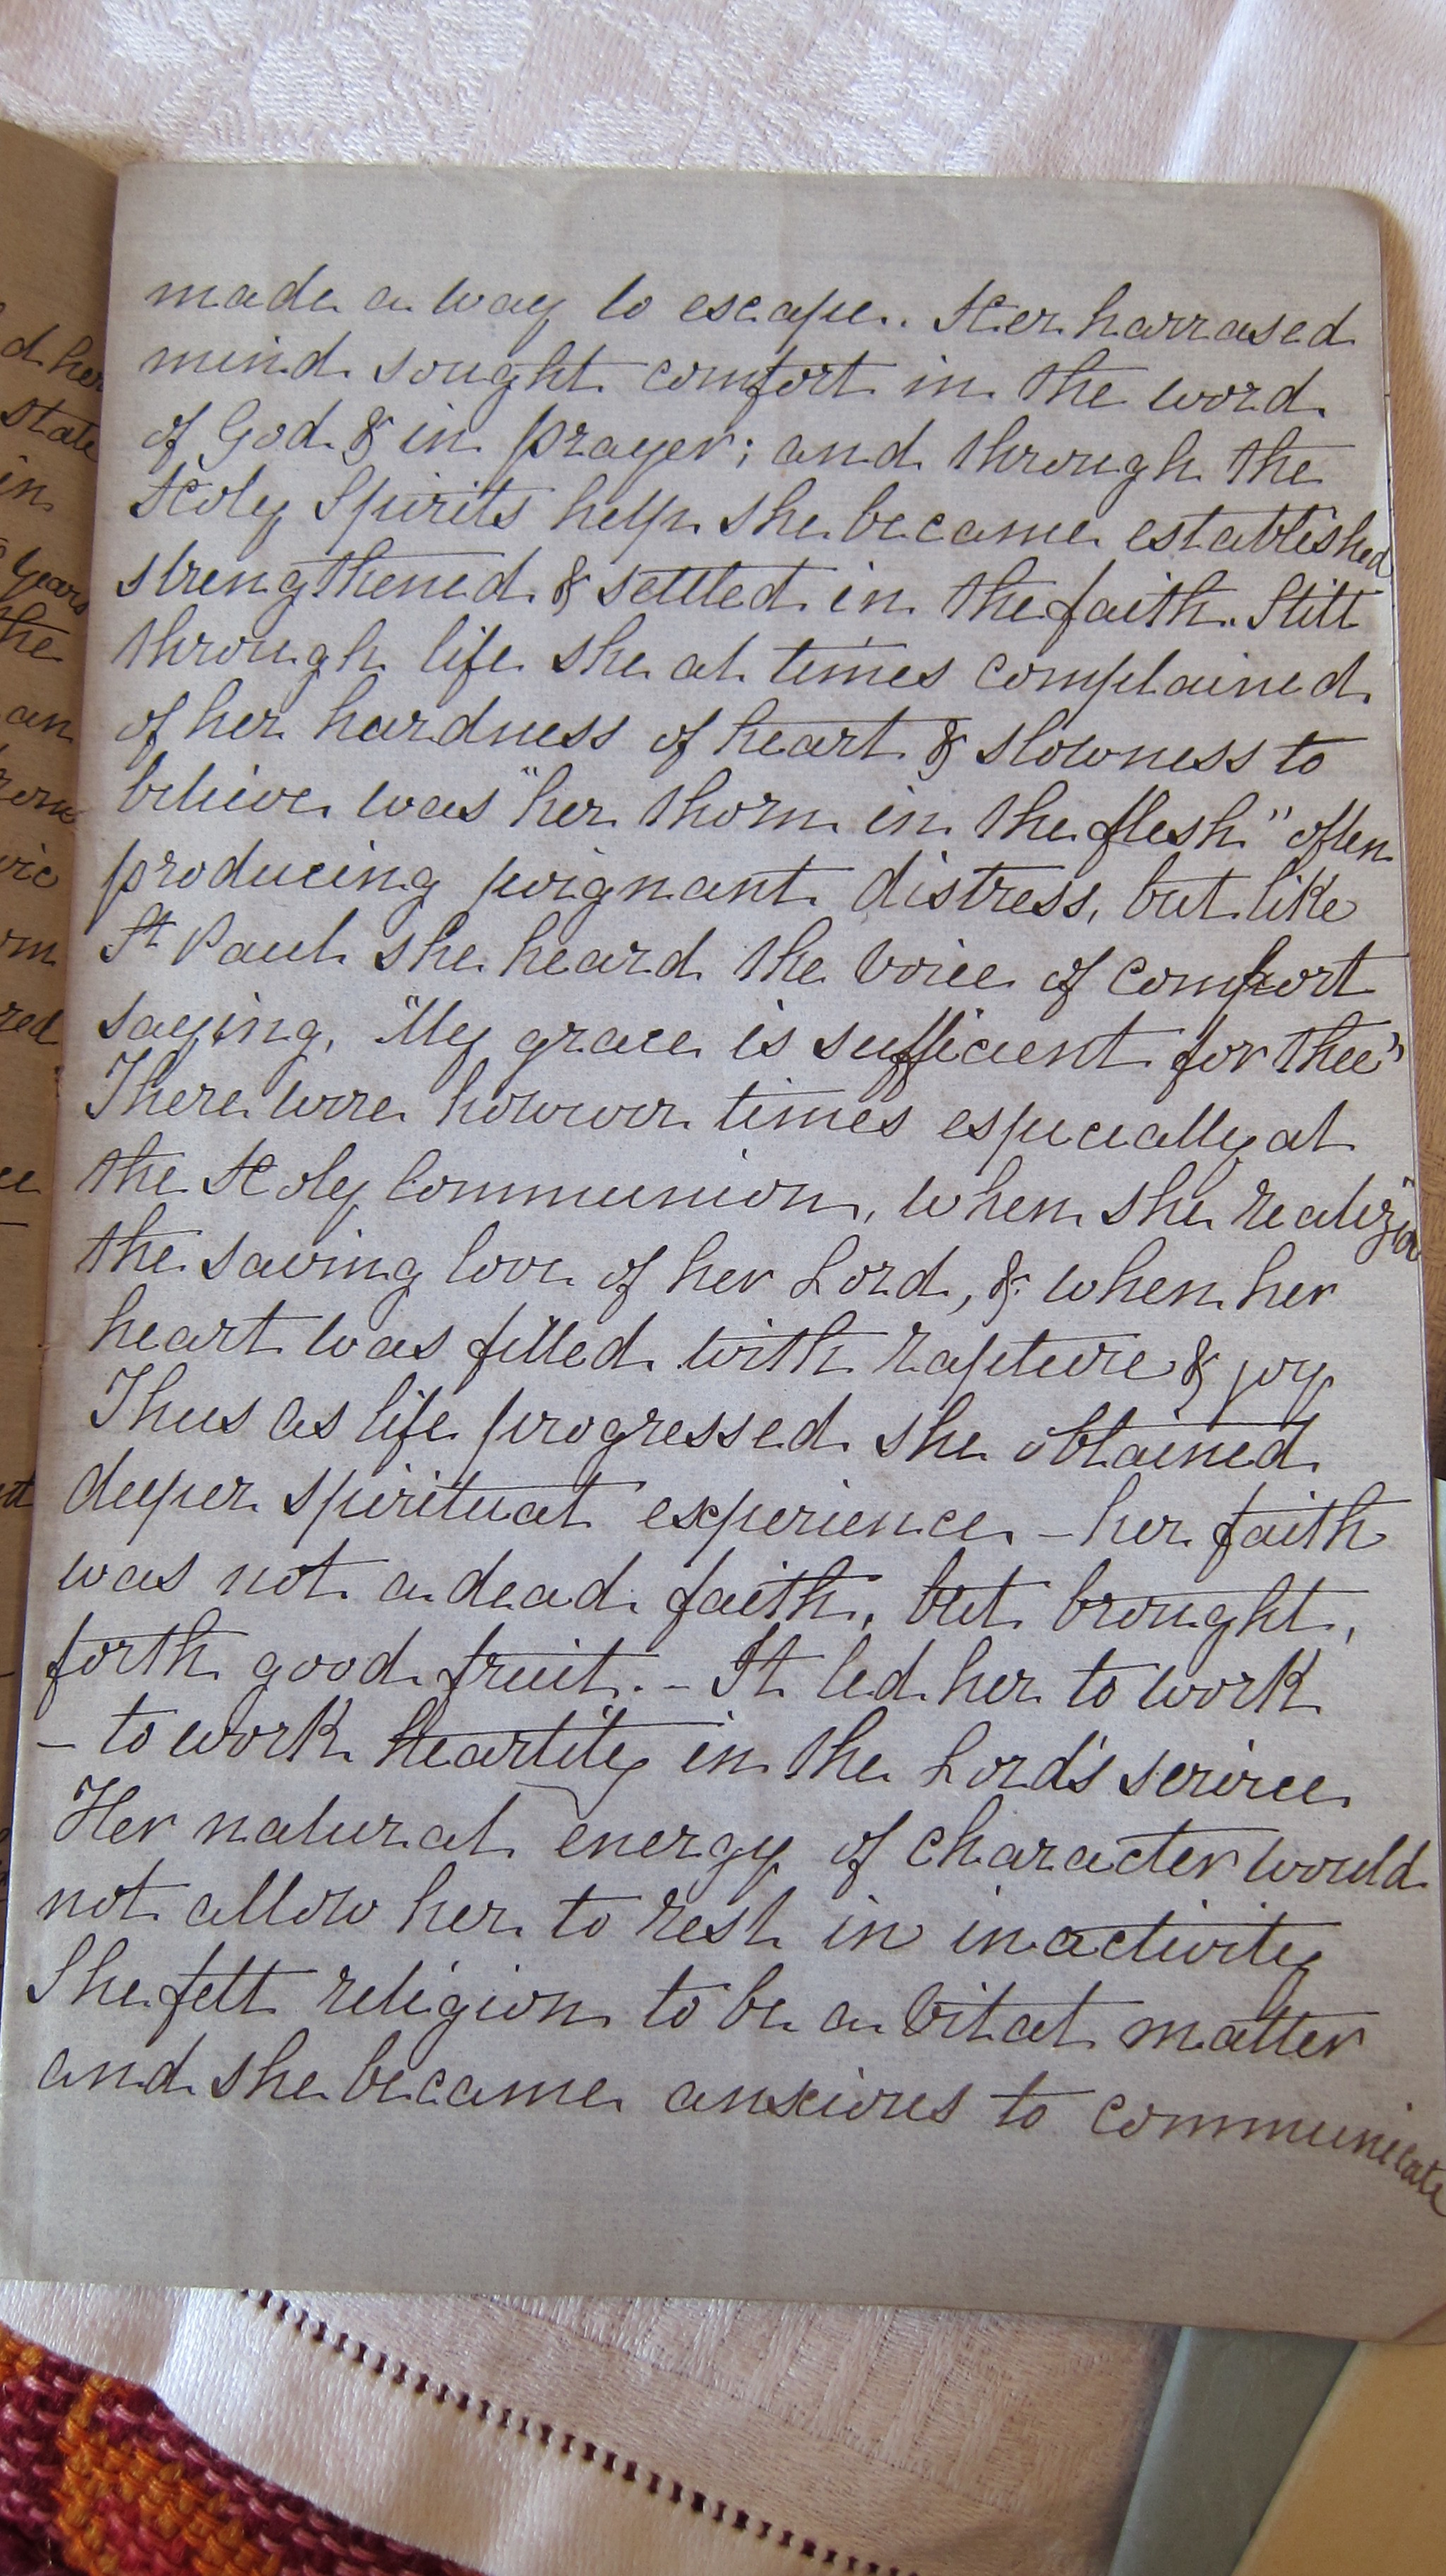 made a way to escape. Her harrased
mind sought comfort in the word
of God & in prayer; and through the
Holy Spirits help she became established
strengthened & settled in the faith. Still
through life she at times complained
of her hardness of heart & slowness to
believe was "her thorn in the flesh" often
producing poignant distress, but like
St Paul she heard the voice of comfort
saying, "My grace is sufficient for thee"
There were however times especially at
the Holy Communion, when she realized
the saving love of her Lord, & when her
heart was filled with rapture & joy
Thus as life progressed she obtained
deeper spiritual experience - her faith
was not a dead faith, but brought,
forth good fruit. - It led her to work
- to work heartily in the Lord's service
Her natural energy of character would
not allow her to rest in inactivity
She felt religion to be a vital matter
and she became anxious to communicate
d her
state
in
years
the
an
red